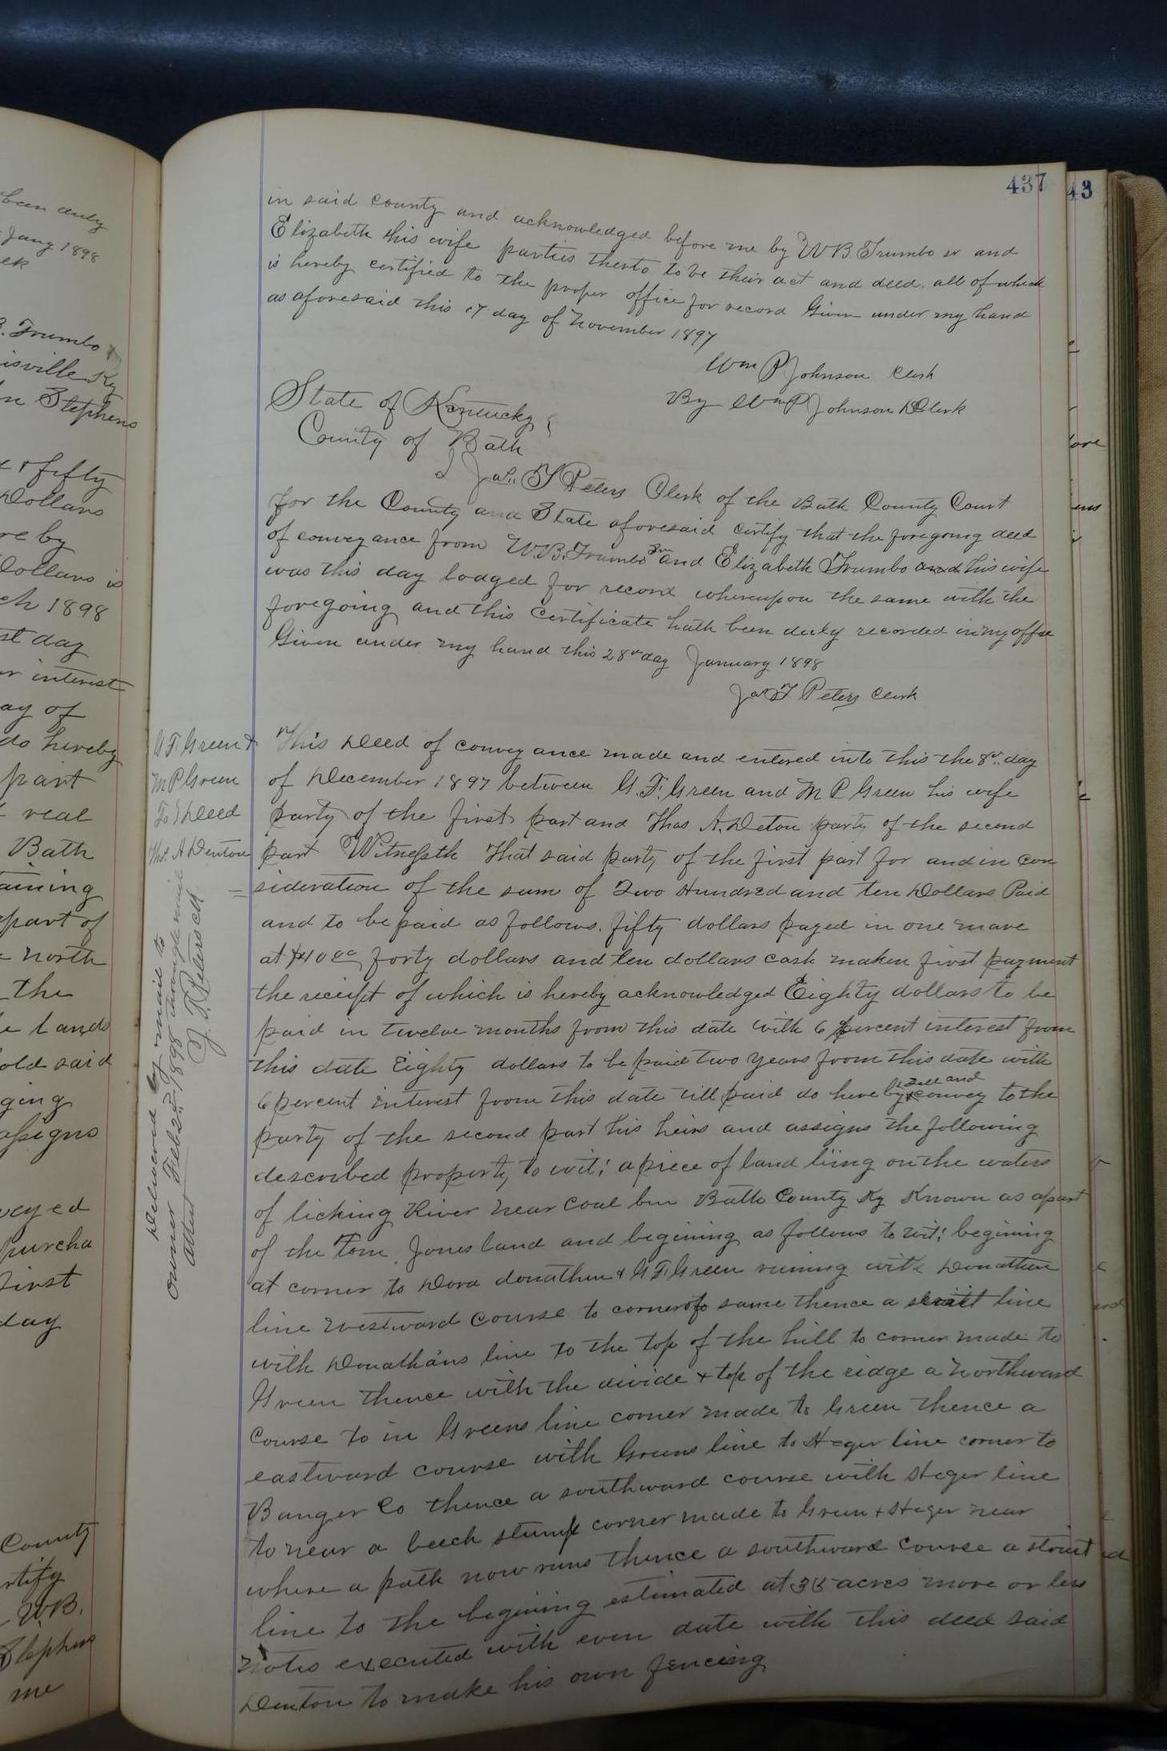 437
43
in said county and acknowledged before me by W B Trumbo sr and
Elizabeth his wife parties therto to be their act and deed. all of which
is hereby certified to the proper office for record Given under my hand
as aforesaid this 17 day of November 1897
Wm P Johnson Clerk
By Wm P Johnson D Clerk
State of Kentucky
County of Bath
I Jas. T Peters Clerk of the Bath County Court
for the County and State aforesaid certify that the foregoing deed
of conveyance from W.B. Trumbo Sr and Elizabeth Trumbo and his wife
was this day lodged for record whereupon the same with the
foregoing and this Certificate hath been duly recorded in my office
Given under my hand this 28 day January 1898
Jas T Peters Clerk
G. F. Green &
M P Green
To } Deed
Thos. A Denton
This Deed of conveyance made and entered into this the 8th day
of December 1897 between G. F. Green and M P Green his wife
party of the first part and Thas A. Deton party of the second
part Witnesseth That said party of the first part for and in con
sideration of the sum of Two Hundred and ten Dollars Paid
and to be paid as follows. fifty dollars payed in one mare
at $40 00 forty dollars and ten dollars cash maken first payment
the receipt of which is hereby acknowledged Eighty dollars to be
paid in twelve months from this date with 6 percent interest from
this date Eighty dollars to be paid two years from this date with
6 percent interest from this date till paid do hereby sell and convey to the
party of the second part his heirs and assigns the following
described property to wit; a piece of land liing on the waters
of licking River near Coal bur Bath County Ky Known as apart
of the Tom Jones land and begining as follows to wit; begining
at corner to Dora donathun & G. F. Green running with Donathun
line westward course to corner of same thence a strait line
with Donathans line to the top of the hill to corner made to
Green thence with the divide & top of the ridge a northward
Course to in Greens line corner made to Green thence a
eastward course with Greens line to Heger line corner to
Banger Co thence a southward course with Heger line
to near a beech stump corner made to Green & Heger near
where a path now runs thence a southward course a strait
line to the begining estimated at 35 acres more or less
Notes executed with even date with this deed said
Denton to make his own fencing
Delivered by mail to
owner Feb 22 1898
J. T. Peters clk
attest
been duly
Jany 1898
Trumbo
isville Ky
Stephens
fifty
Dollars
re by
Dollars is
ch 1898
st day
r interest
ay of
do hereby
part
real
Bath
taining
part of
north
the
lands
old said
ging
assigns
veyed
purcha
first
day
County
rtify
W.B.
Stephens
me